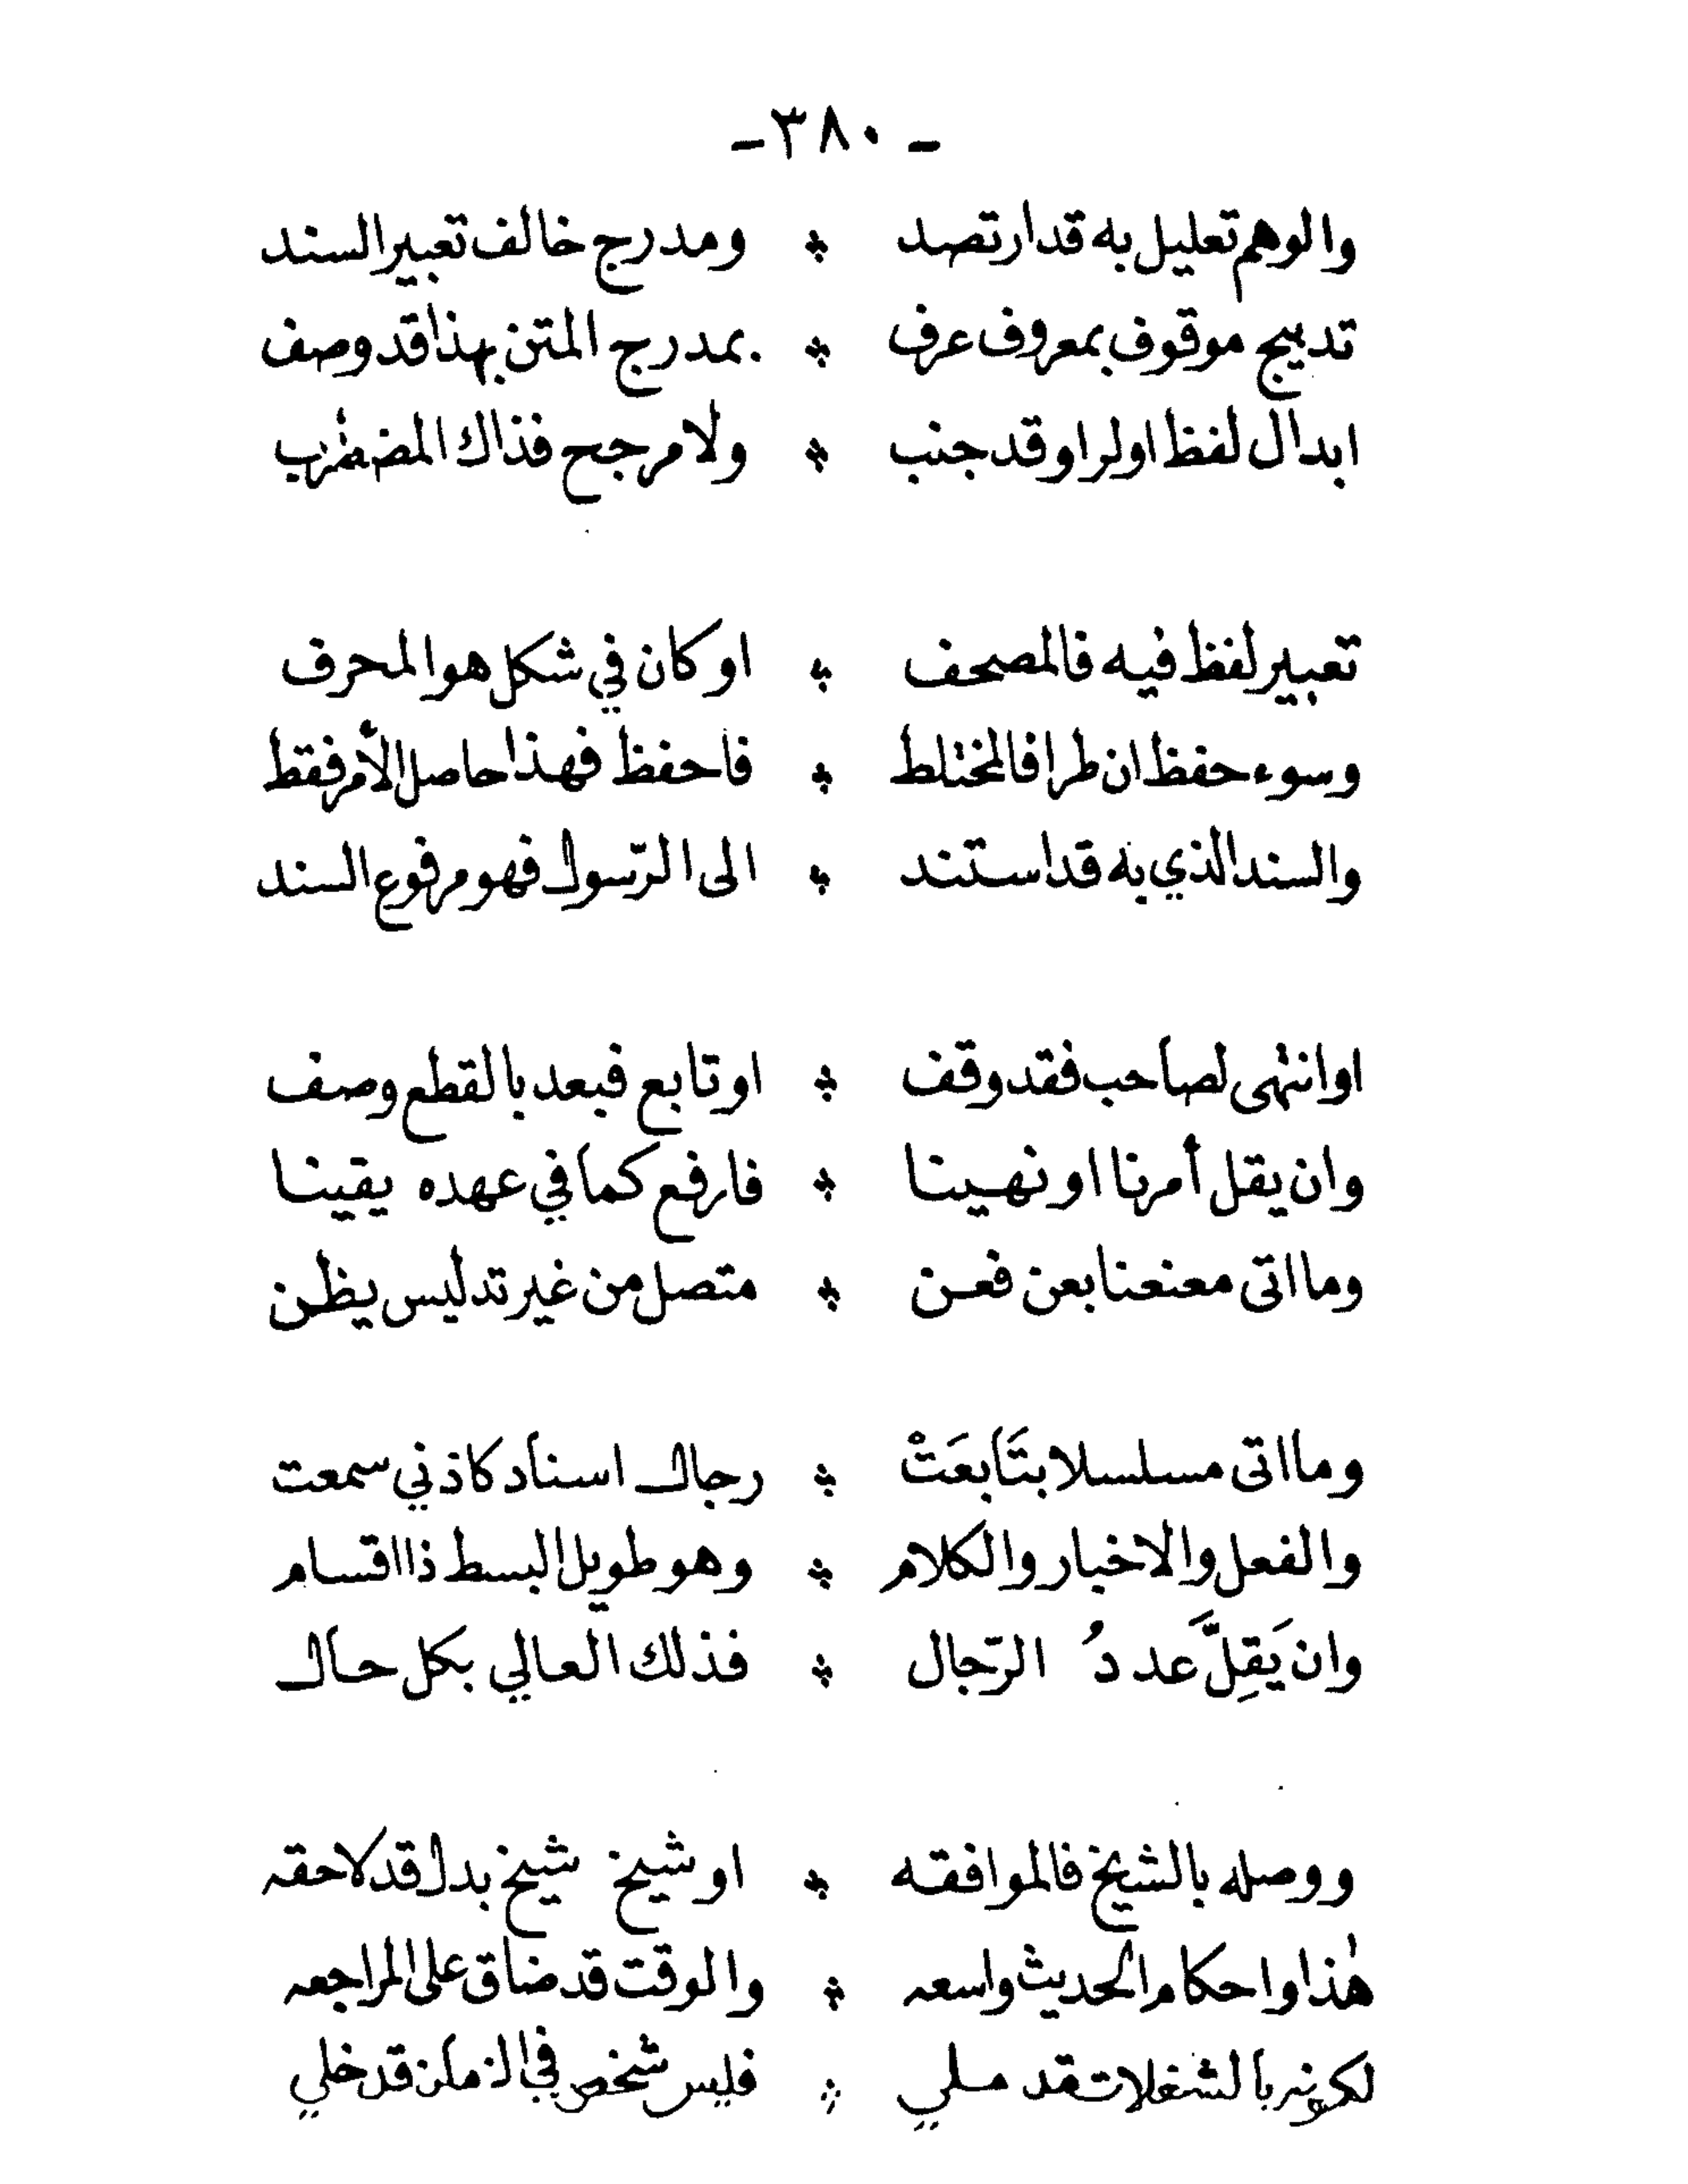 - ٣٨٠ -
والوهم تعليل به قد ارتصد * ومدرج خالف تعبير السند
تدبيج موقوف بمعروف عرف * بمدرج المتن بهذا قد وصف
ابدال لفظ اولراو قد جنب * ولا مرجح فذاك المضطرب
تعبير لفظ فيه فالمصحف * او كان في شكل هو المحرف
وسوء حفظ ان طرا فالمختلط * فاحفظ فهذا حاصل الأمر فقط
والسند الذي به قد استند * الى الرّسول فهو مرفوع السند
او انتهى لصاحب فقد وقف * او تابع فبعد بالقطع وصف
وان يقل أمرنا او نهينا * فارفع كما في عهده يقينا
وما اتى معنعنا بعن فعن * متصل من غير تدليس يظن
وما اتى مسلسلا بتَابعَتْ * رجال اسناد كاذني سمعت
والفعل والاخبار والكلام * وهو طويل البسط ذا اقسام
وان يَقِلَّ عددُ الرّجال * فذلك العالي بكل حال
ووصله بالشيخ فالموافقه * او شيخ شيخ بدل قد لاحقه
هٰذا واحكام الحديث واسعه * والوقت قد ضاق على المراجعه
لكونه بالشغلات قد ملي * فليس شخص في الزمان قد خلي